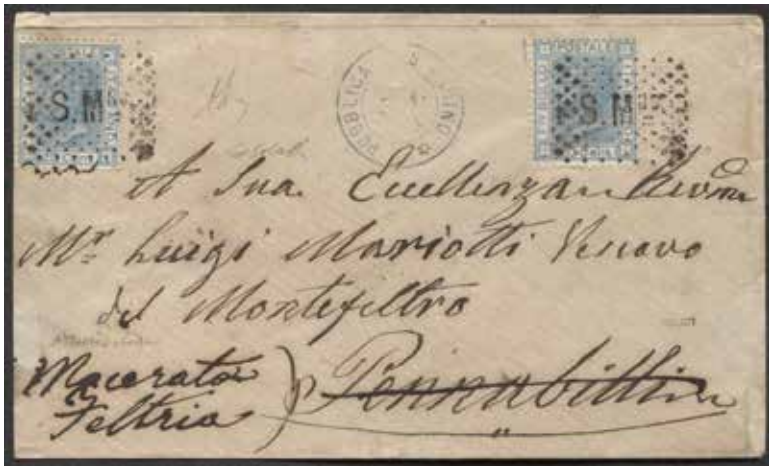 POSTALE
S.M
PUBBLICA
S.M
A Sua Eccellenza Revdma
Mr Luigi Mariotti Vescovo
del Montefeltro
Macerata
Feltria
Pennabilli